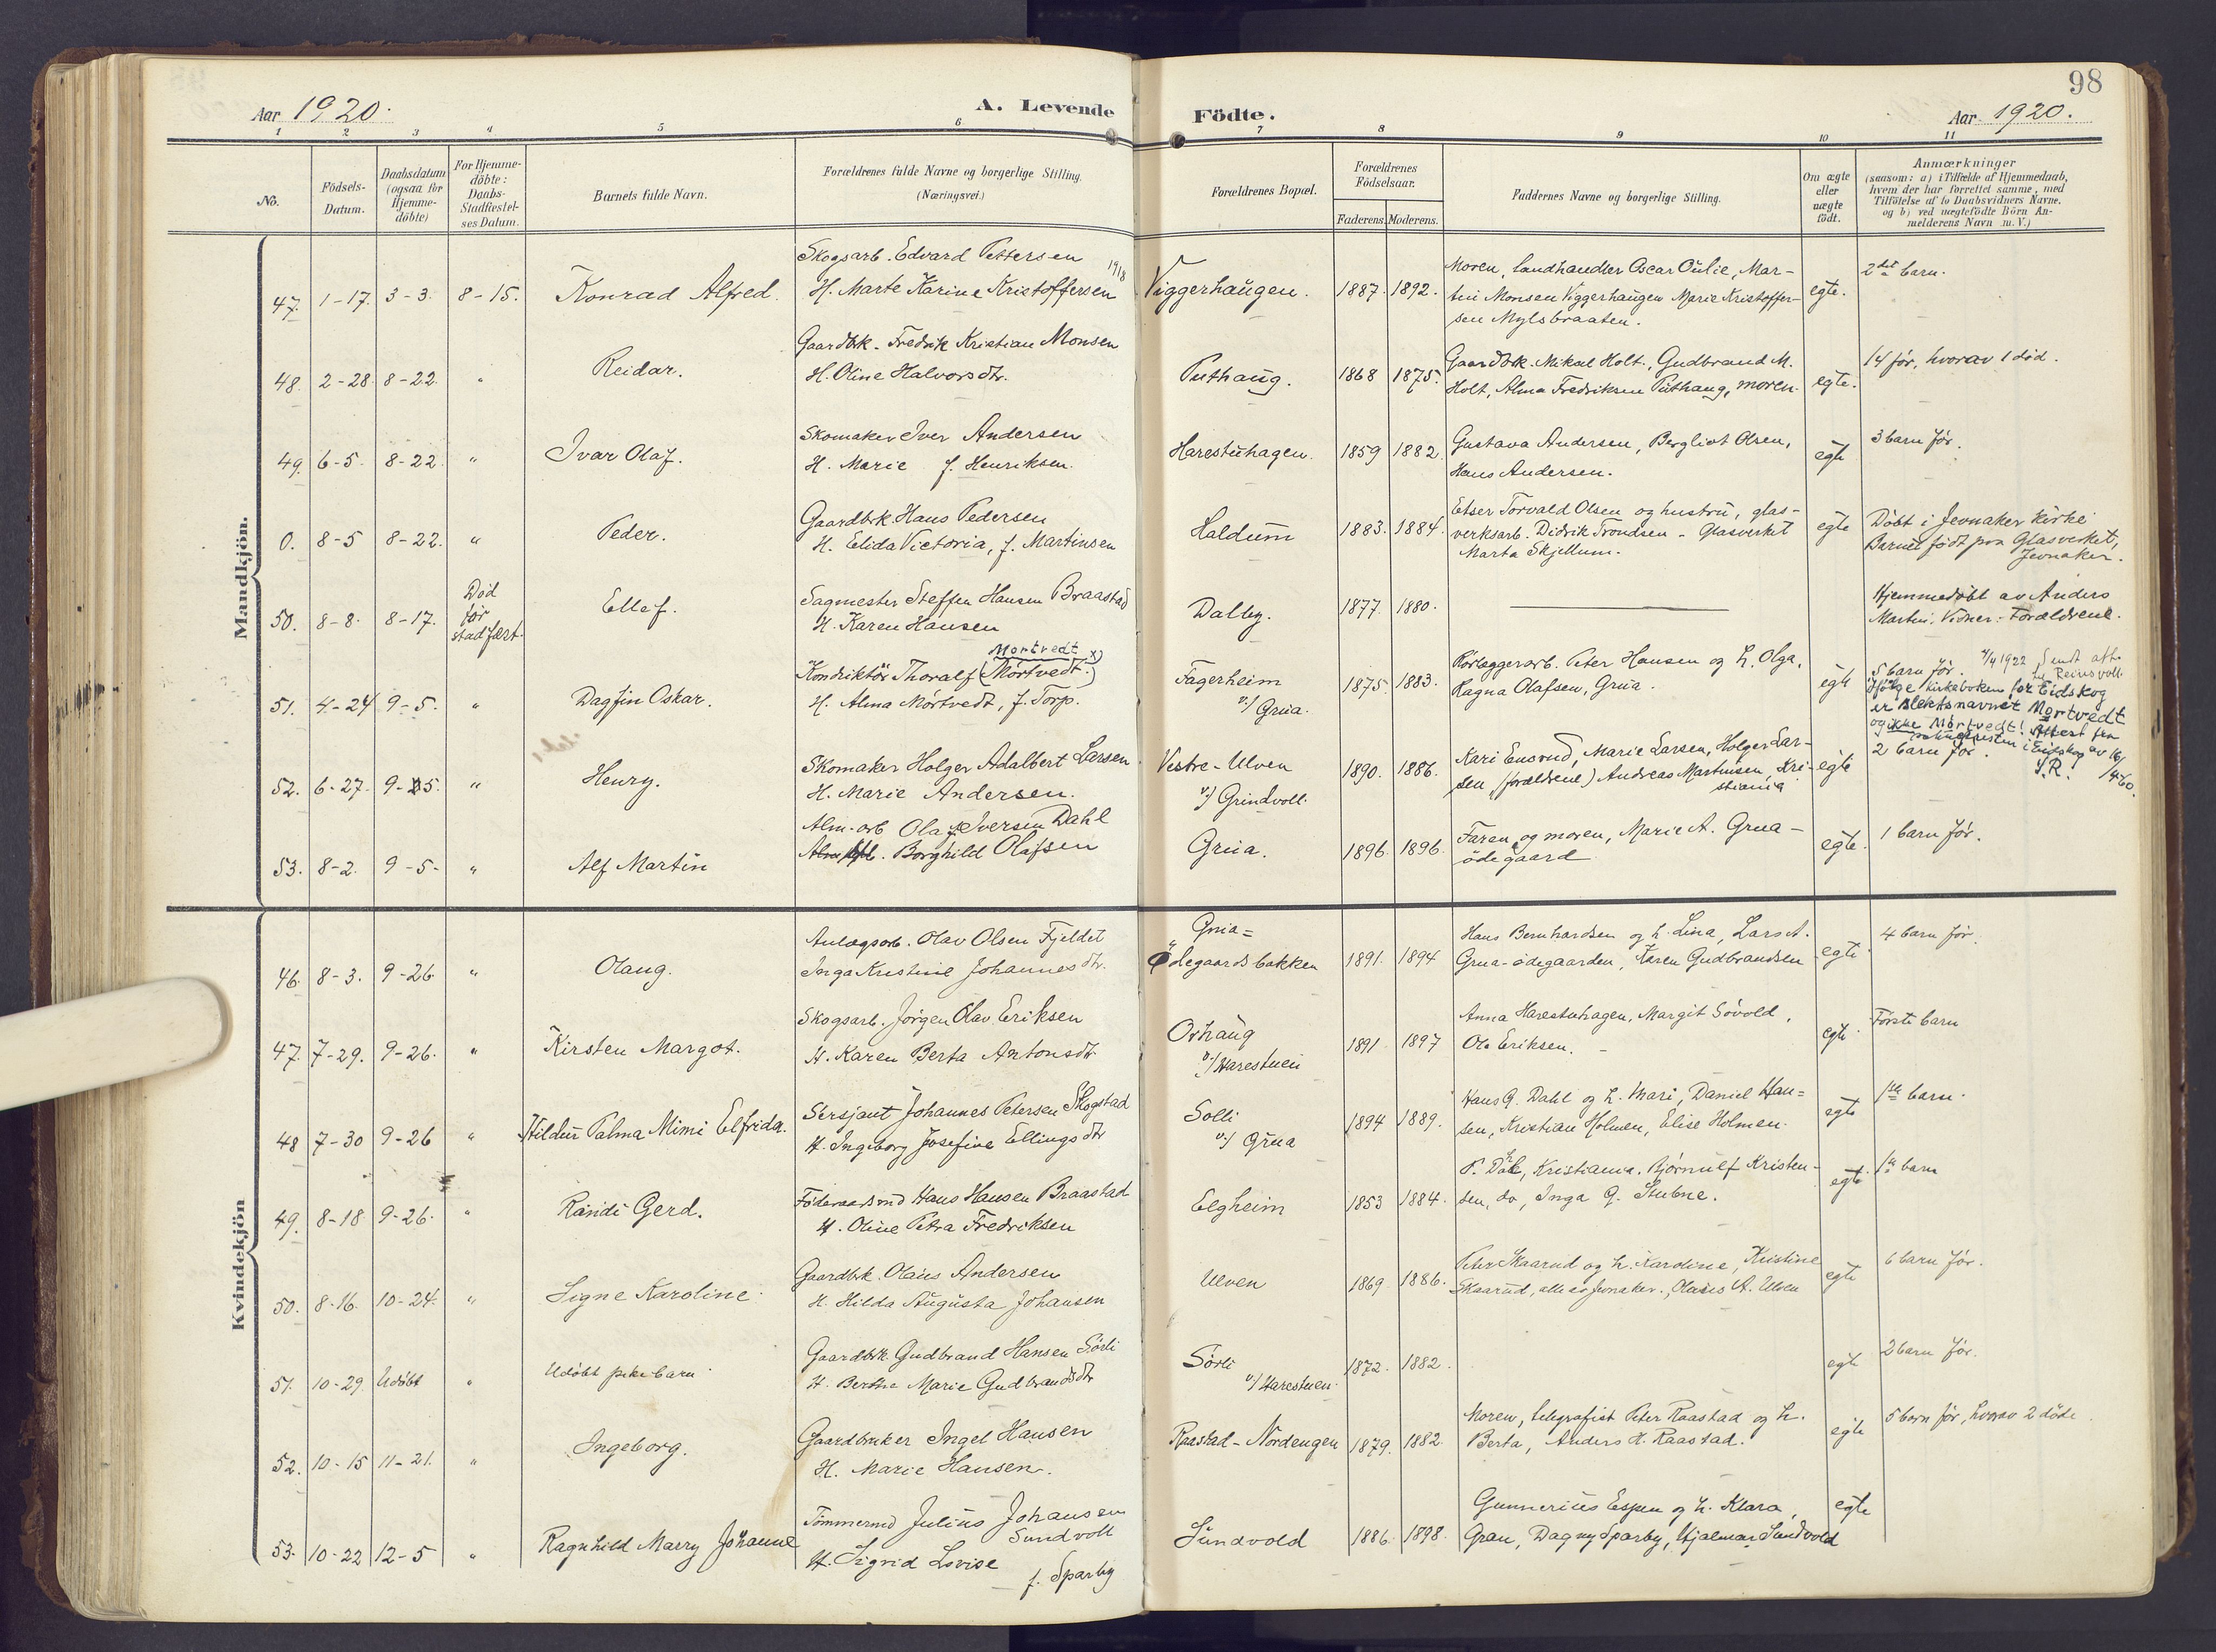 98
Aar 1920.
A. Levende Födte.
Aar 1920.
1 2 3 4 5 6 7 8 9 10 11
No.
Födsels-
Datum.
Daabsdatum
(ogsaa for
Hjemme-
döbte)
For Hjemme-
döbte:
Daabs-
Stadfæstel-
ses Datum.
Barnets fulde Navn.
Forældrenes fulde Navne og borgerlige Stilling.
(Næringsvei.)
Forældrenes Bopæl.
Forældrenes
Födselsaar.
Faderens. Moderens.
Faddernes Navne og borgerlige Stilling.
Om ægte
eller
uægte
födt.
Anmærkninger
(saasom: a) i Tilfælde af Hjemmedaab,
hvem der har forrettet samme, med
Tilföielse af to Daabsvidners Navne.
og b) ved uægtefödte Börn An-
melderens Navn m. V.)
Mandkjön.
Skogsarb. Edvard Pettersen
1918
47. 1-17. 3-3. 8-15. Konrad Alfred. H. Marte Karine Kristoffersen
Viggerhaugen. 1887. 1892.
Moren, Landhandler Oscar Oulie, Mar-
tin Monsen Viggerhaugen Marie Kristoffer-
sen Mylsbraaten.
egte.
2det barn.
Gaardbk. Fredrik Kristian Monsen
48. 2-28. 8-22. " Reidar. H. Oline Halvorsdtr.
Puthaug. 1868 1875.
Gaardbk. Mikael Holt, Gudbrand M.
Holt, Alma Fredriksen Puthaug, moren.
egte.
14 før, hvorav 1 død.
Skomaker Iver Andersen
49. 6-5. 8-22 " Ivar Olaf. H. Marie f. Henriksen.
Harestuhagen. 1859 1882.
Gustava Andersen, Bergliot Olsen,
Hans Andersen.
egte
3 barn før.
Gaardbrk. Hans Pedersen
0. 8-5 8-22. " Peder. H. Elida Victoria, f. Martinsen
Haldum 1883. 1884.
Etser Torvald Olsen og hustru, glas-
verksarb. Didrik Trondsen - Glasverket
Marta Skjellum.
egte
Döbt i Jevnaker kirke
Barnet födt paa Glasverket,
Jevnaker.
Sagmester Steffen Hansen Braastad
50. 8-8. 8-17. Død
før
stadfæst. Ellef. H. Karen Hansen
Dalby. 1877. 1880.
Hjemmedøbt av Anders
Martin. Vidner: Forældrene.
Mortvedt x)
Konduktör Thoralf (Mörtvedt.)
51. 4-24 9-5. " Dagfin Oskar. H. Alma Mörtvedt, f. Torp.
Fagerheim
v/ Grua. 1875 1883.
Rörlæggerarb. Peter Hansen og h. Olga,
Ragna Olafsen, Grua.
egte
5 barn før. 4/4 1922 Sendt att.
Reinsvoll
Ifölge kirkeboken for Eidskog
er slektsnavnet Mortvedt
og ikke Mörtvedt! Attest fra
soknepresten i Eidskog av 16/
4-60.
S.R.
Skomaker Holger Adalbert Larsen
52. 6-27. 9-5. " Henry. H. Marie Andersen.
Vestre-Ulven
v/ Grindvoll. 1890. 1886.
Kari Ensrud, Marie Larsen, Holger Lar-
sen (forældrene) Andreas Martinsen, Kri-
stiania
egte
2 barn før.
Alm-arb Olaf Iversen Dahl
53. 8-2. 9-5. " Alf Martin Borghild Olafsen
Grua. 1896. 1896.
Faren og moren, Marie A. Grua-
ödegaard
egte.
1 barn før.
Kvindekjön
Anlægsarb. Olav Olsen Fjeldet
46. 8-3. 9-26 " Olaug. Inga Kristine Johannesdtr.
Grua=
Ödegaardsbakken 1891. 1894
Hans Bernhardsen og h. Lina, Lars A.
Grua-ödegaarden, Karen Gudbrandsen
egte
4 barn før.
Skogsarb. Jørgen Olav Eriksen
47. 7-29. 9-26. " Kirsten Margot. H. Karen Berta Antonsdtr
Orhaug
v/ Harestuen 1891 1897
Anna Harestuhagen, Margit Sövold,
Ole Eriksen.
egte
Förste barn
Sersjant Johannes Petersen Skogstad
48 7-30 9-26 " Hildur Palma Mimi Elfrida. H. Ingeborg Josefine Ellingsdtr
Solli
v/ Grua 1894 1889.
Hans G. Dahl og h. Mari, Daniel Han=
sen, Kristian Holmen, Elise Holmen.
egte
1ste barn.
Föderaadsmd Hans Hansen Braastad
49. 8-18 9-26. " Randi Gerd. H. Oline Petra Fredriksen
Elgheim 1853 1884.
P. Dahl, Kristiania. Bjørnulf Kristen-
sen, do, Inga G. Stubne.
egte
1ste barn
Gaardbrk. Olaus Andersen
50. 8-16. 10-24. " Signe Karoline. H. Hilda Augusta Johansen
Ulven 1869. 1886.
Peter Skaarud og h. Karoline, Kristine
Skaarud, alle av Jevnaker., Olaus A. Ulven
egte
6 barn før.
Gaardbrk. Gudbrand Hansen Sörli
51. 10-29. Udöbt " Udöbt pikebarn. H. Berthe Marie Gudbrandsdtr
Sörli
v/ Harestuen. 1872. 1882.
egte
2 barn før.
Gaardbruker Ingel Hansen
52. 10-15 11-21. " Ingeborg. H. Marie Hansen.
Raastad-Nordengen 1879. 1882.
Moren, telegrafist Peter Raastad og h.
Berta, Anders H. Raastad.
egte
5 barn før, hvorav 2 døde.
Tömmermd Julius Johansen
Sundvoll
53. 10-22 12-5 " Ragnhild Maery Johanne H. Sigrid Lovise
f. Sparby
Sundvold 1886. 1898.
Gunnerius Espen og h. Klara,
Gran, Dagny Sparby, Hjalmar Sundvold
egte